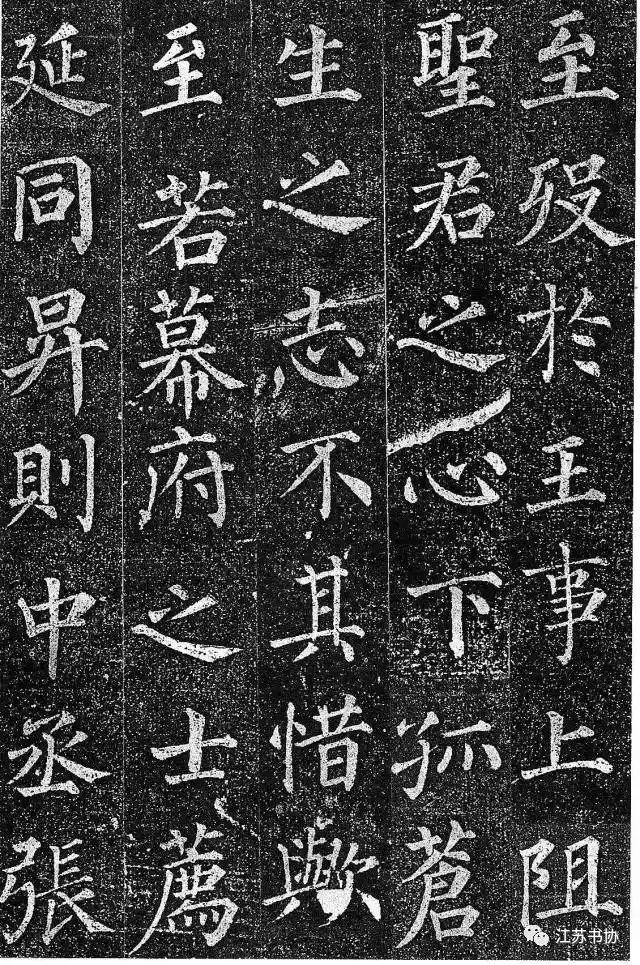 至殁於王事上阻
聖君之心下孤蒼
生之志不其惜歟
至若幕府之士薦
延同昇則中丞張
江苏书协